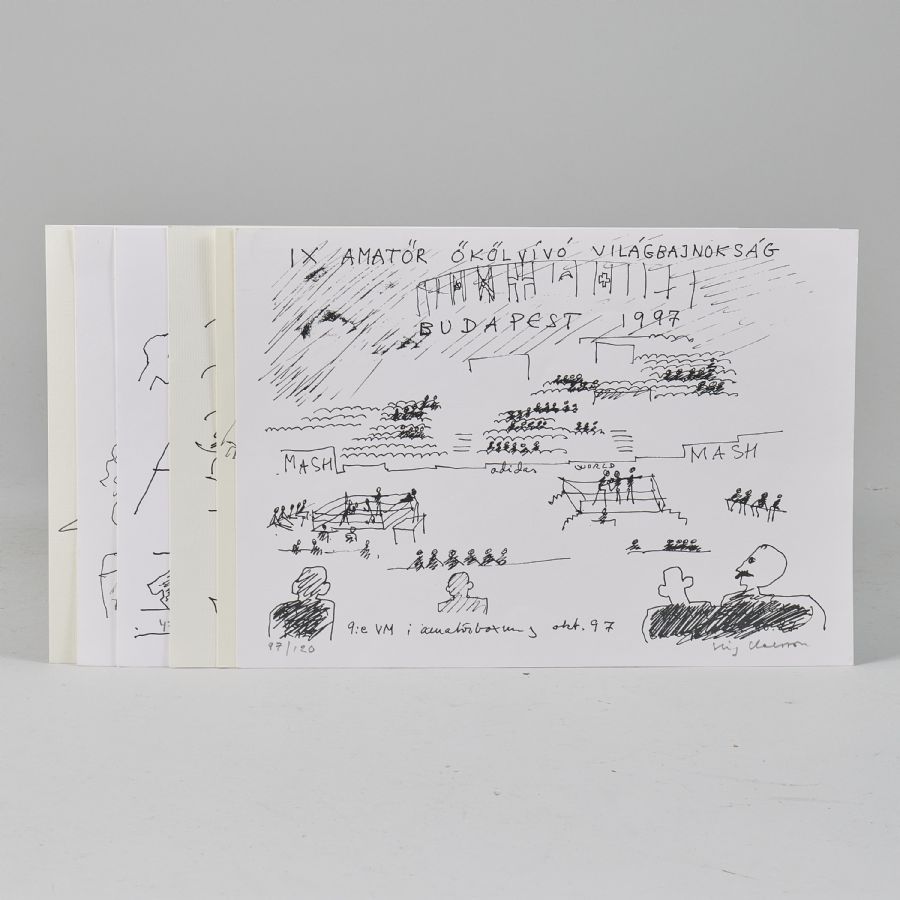 IX AMATŐR ŐKŐLVÍVÓ VILÁGBAJNOKSÁG
BUDAPEST 1997
MASH
adidas
WORLD
MASH
9:e VM i amatörboxning okt. 97
97/120
Stig Claesson